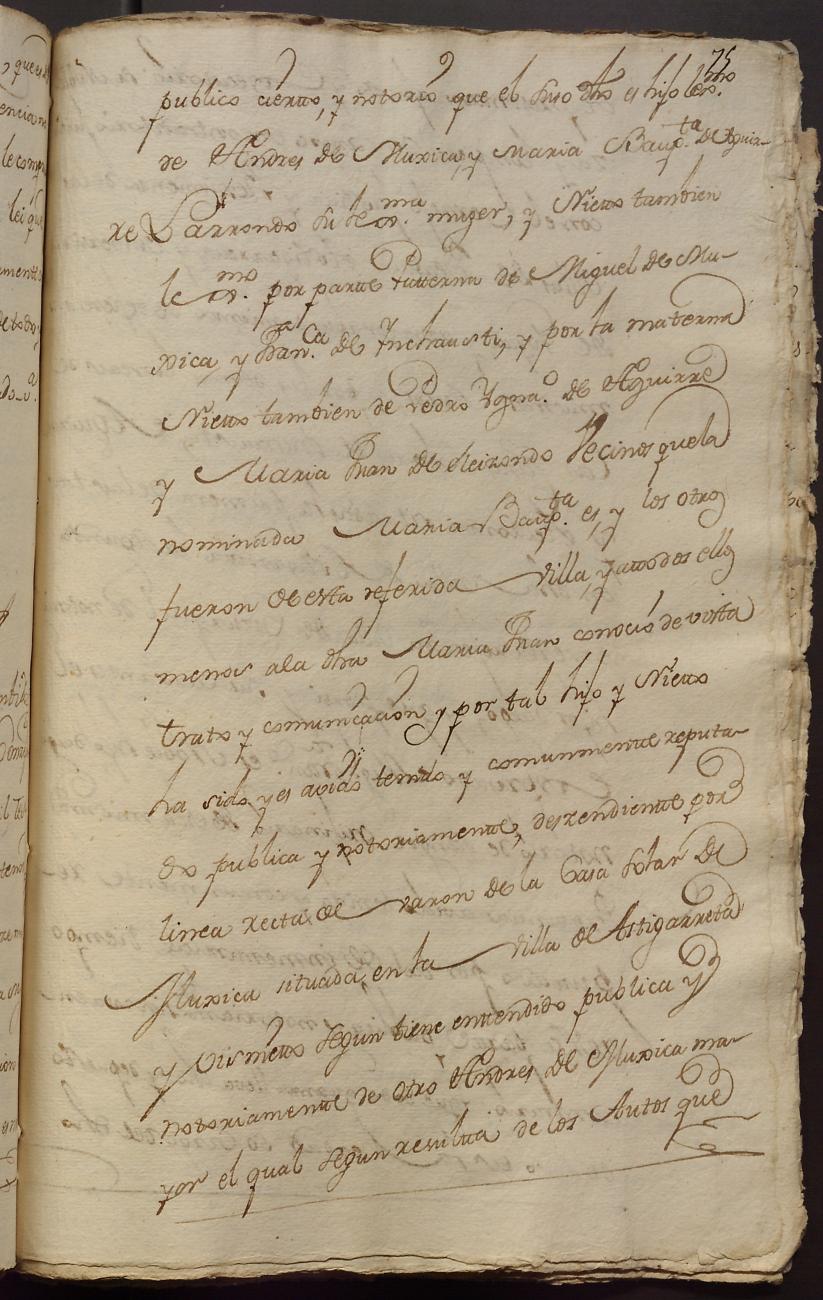 75
publico cierto, y notorio que el suso dho es hijo lexmo.
de Andres de Muxica, y Maria Baup.ta de Aguir-
re Larrondo su lex.ma muger, y Nieto tambien
lex.mo por parte Paterna de Miguel de Mu-
xica, y Fran.ca de Ynchausti, y por la materna
Nieto tambien de Pedro Ygna.o de Aguirre
y Maria Juan de Eleizondo Vecinos que la
nominada Maria Baup.ta es, y los otros
fueron de esta referida villa, y a todos ellos
menos a la dha Maria Juan conoció de vista
trato y comunicacion y por tal hijo y Nieto
ha sido y es avido tenido y comunmente reputa-
do publica y notoriamente, deszendiente por
linea recta de varon de la Casa Solar de
Muxica situada en la villa de Astigarreta
y Visnieto segun tiene entendido publica y
notoriamente de otro Andres de Muxica ma-
yor el qual segun resulta de los Autos que